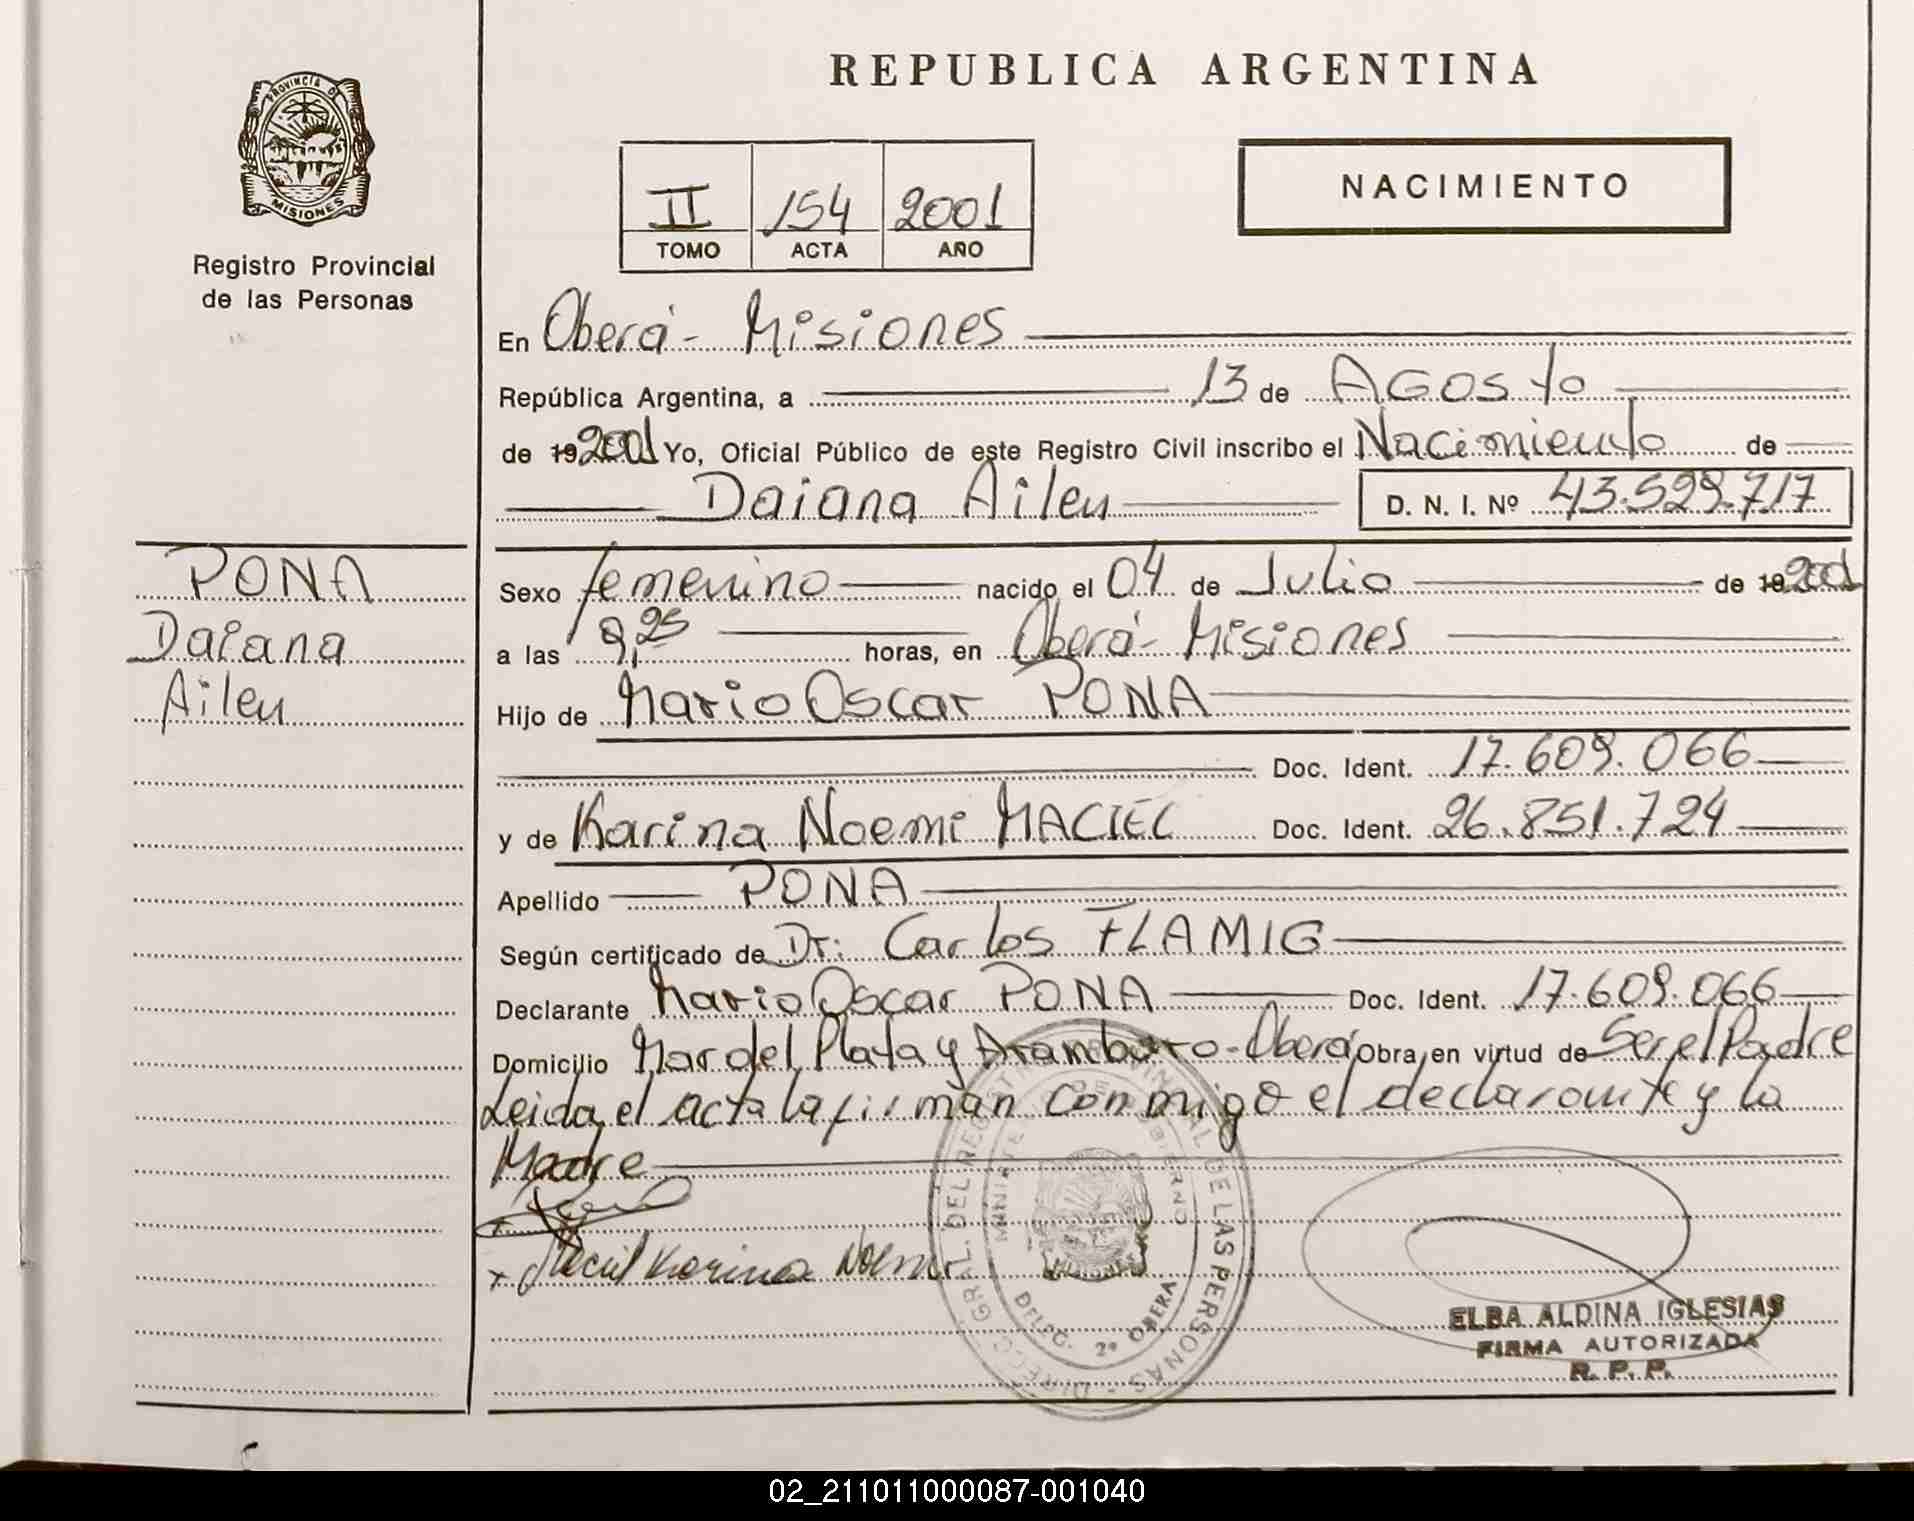 REPUBLICA ARGENTINA
PROVINCIA DE
MISIONES
Registro Provincial
de las Personas
II 154 2001
TOMO ACTA AÑO
NACIMIENTO
En Oberá - Misiones
República Argentina, a 13 de AGOSto
de 19 2001 Yo, Oficial Público de este Registro Civil inscribo el Nacimiento de
Daiana Ailen D. N. I. Nº 43.529.717
PONA
Daiana
Ailen
Sexo femenino nacido el 04 de Julio de 19 2001
a las 9,25 horas, en Oberá - Misiones
Hijo de Mario Oscar PONA
Doc. Ident. 17.609.066
y de Karina Noemi MACIEL Doc. Ident. 26.851.724
Apellido PONA
Según certificado de Dr: Carlos FLAMIG
Declarante Mario Oscar PONA Doc. Ident. 17.609.066
Domicilio Mar del Plata y Aramburo - Oberá Obra en virtud de Ser el Padre
Leida el acta la firman conmigo el declarante y la
Madre
x Maciel Karina Noemi
DIRECC. GRAL. DEL REGISTRO PROVINCIAL DE LAS PERSONAS
MINISTERIO DE GOBIERNO
MISIONES
DELEG. 2ª OBERA
ELBA ALDINA IGLESIAS
FIRMA AUTORIZADA
R. P. P.
02_211011000087-001040